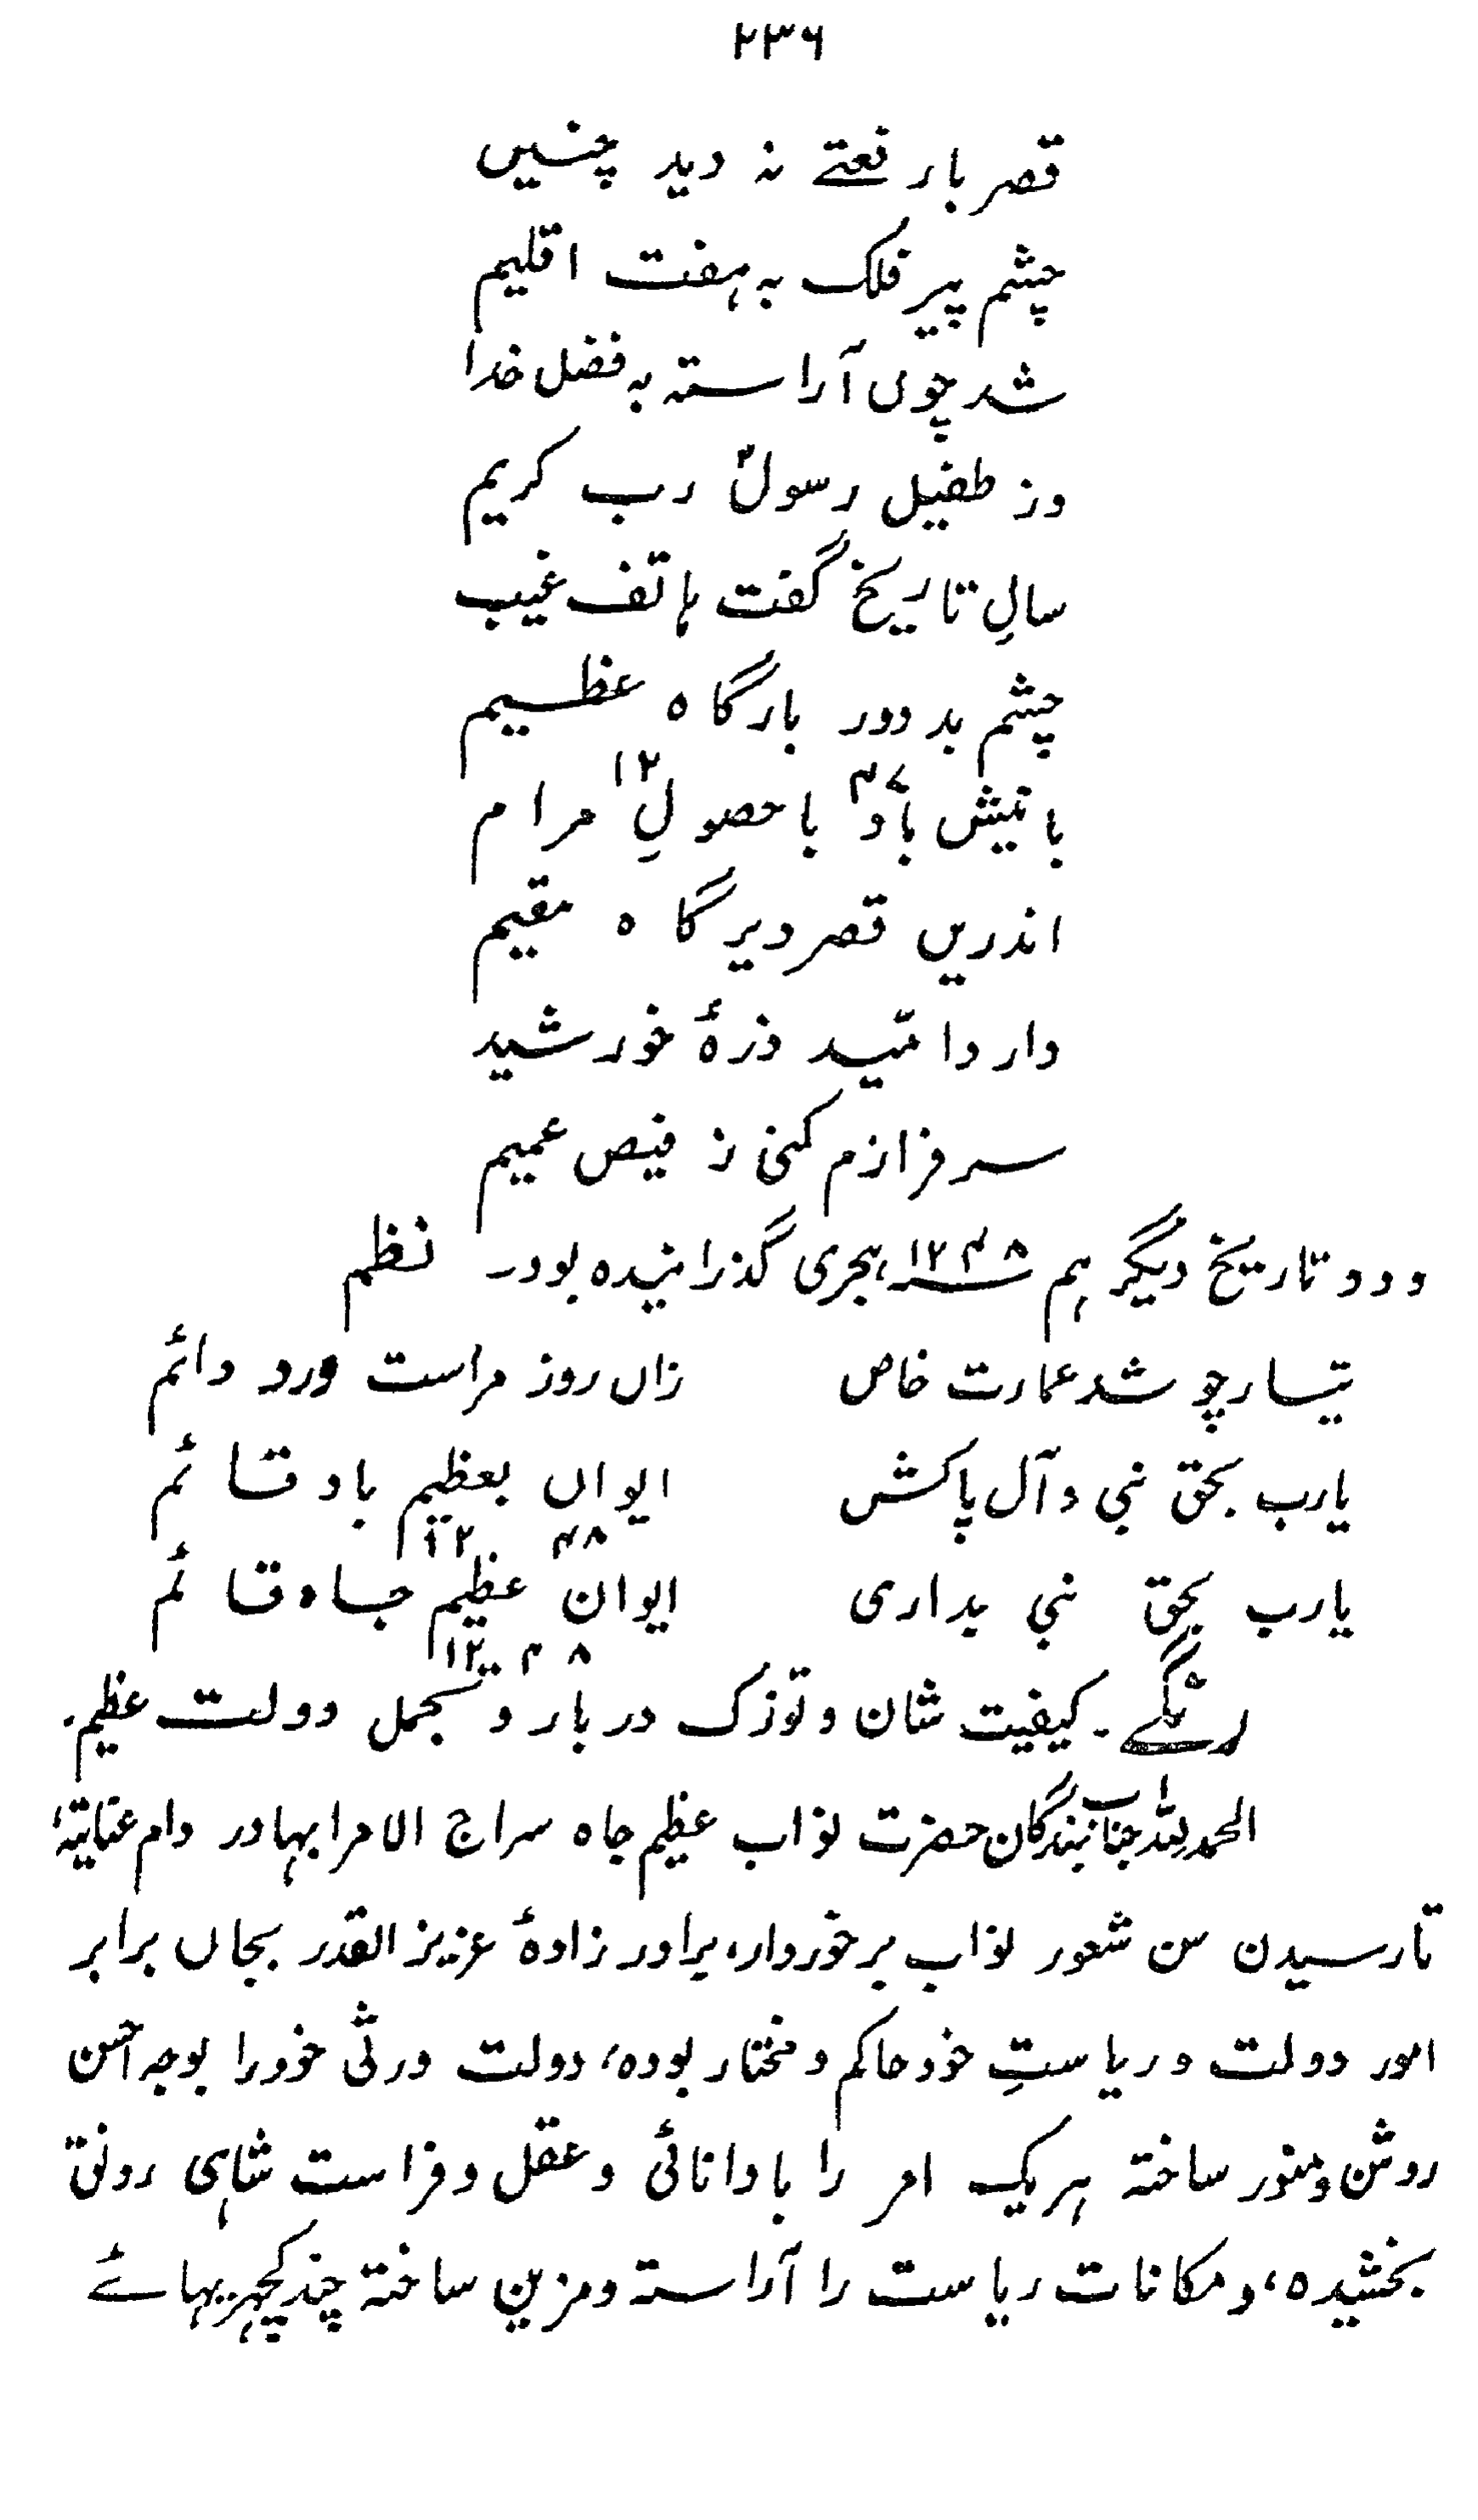 ۲۳۶
قصر بارفعتے نہ دید چنیں
چشم پیر فلک بہ ہفت اقلیم
شد چوں آراستہ بہ فضل خدا
وز طفیل رسولؐ رب کریم
سالِ تاریخ گفت ہاتف غیب
چشم بد دور بارگاہ عظیم
۱۲ ۴۷
بانیش باد با حصولِ مرام
اندریں قصر دیر گاہ مقیم
دارد امید ذرۂ خورشید
سرفرازم کنی ز فیض عمیم
و دو تاریخ دیگر ہم ۱۲۴۸ ہجری گذرانیدہ بود۔ نظم
تیار چو شد عمارت خاص زاں روز مراست ورد دائم
یارب بحق نبی و آل پاکش ایواں بعظیم باد قائم
۱۲ ۴۸
یارب بحق نبی بداری ایوان عظیم جاہ قائم
۱۲ ۴۸
رنگے۔ کیفیت شان و توزک دربار و تجمل دولت عظیم۔
الحمدللہ جناب بندگان حضرت نواب عظیم جاہ سراج الامرا بہادر دام عنایتہٗ
تا رسیدن سن شعور نواب برخوردار، برادر زادۂ عزیز القدر بجاں برابر
امور دولت و ریاستِ خود حاکم و مختار بودہ، دولت ورثی خود را بوجہ احسن
روشن و منور ساختہ ہریک امر را با دانائی و عقل و فراست شاہی رونق
بخشیدہ، و مکانات ریاست را آراستہ و مزین ساختہ چند کچہریہائے